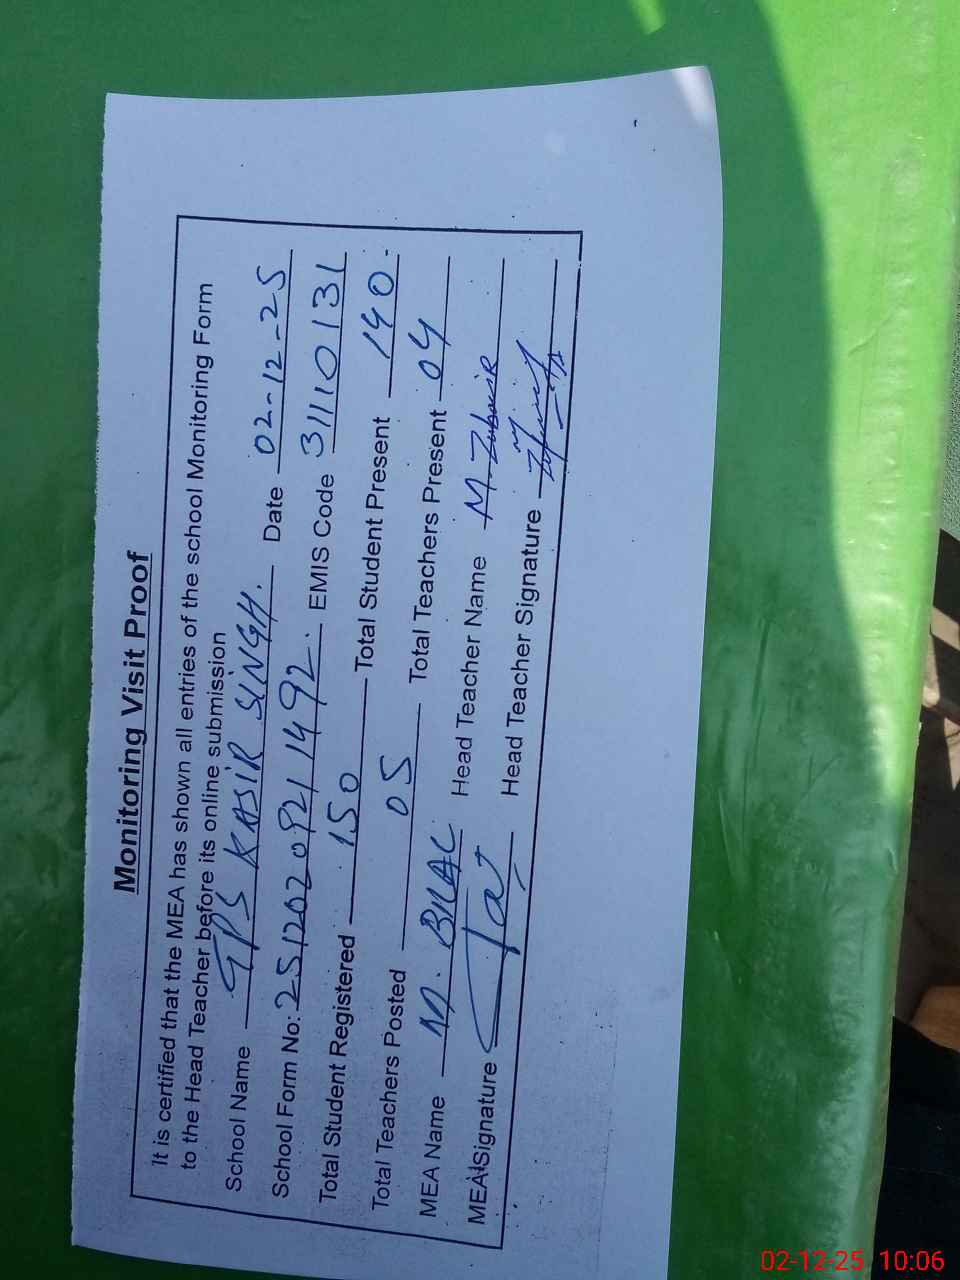 Monitoring Visit Proof
It is certified that the MEA has shown all entries of the school Monitoring Form
to the Head Teacher before its online submission
School Name GPS KASIR SINGH. Date 02-12-25
School Form No: 25120209211492. EMIS Code 31110131
Total Student Registered 150 Total Student Present 140.
Total Teachers Posted 05 Total Teachers Present 04
MEA Name M. BILAL Head Teacher Name M. Zubair
MEA Signature Head Teacher Signature
02-12-25 10:06